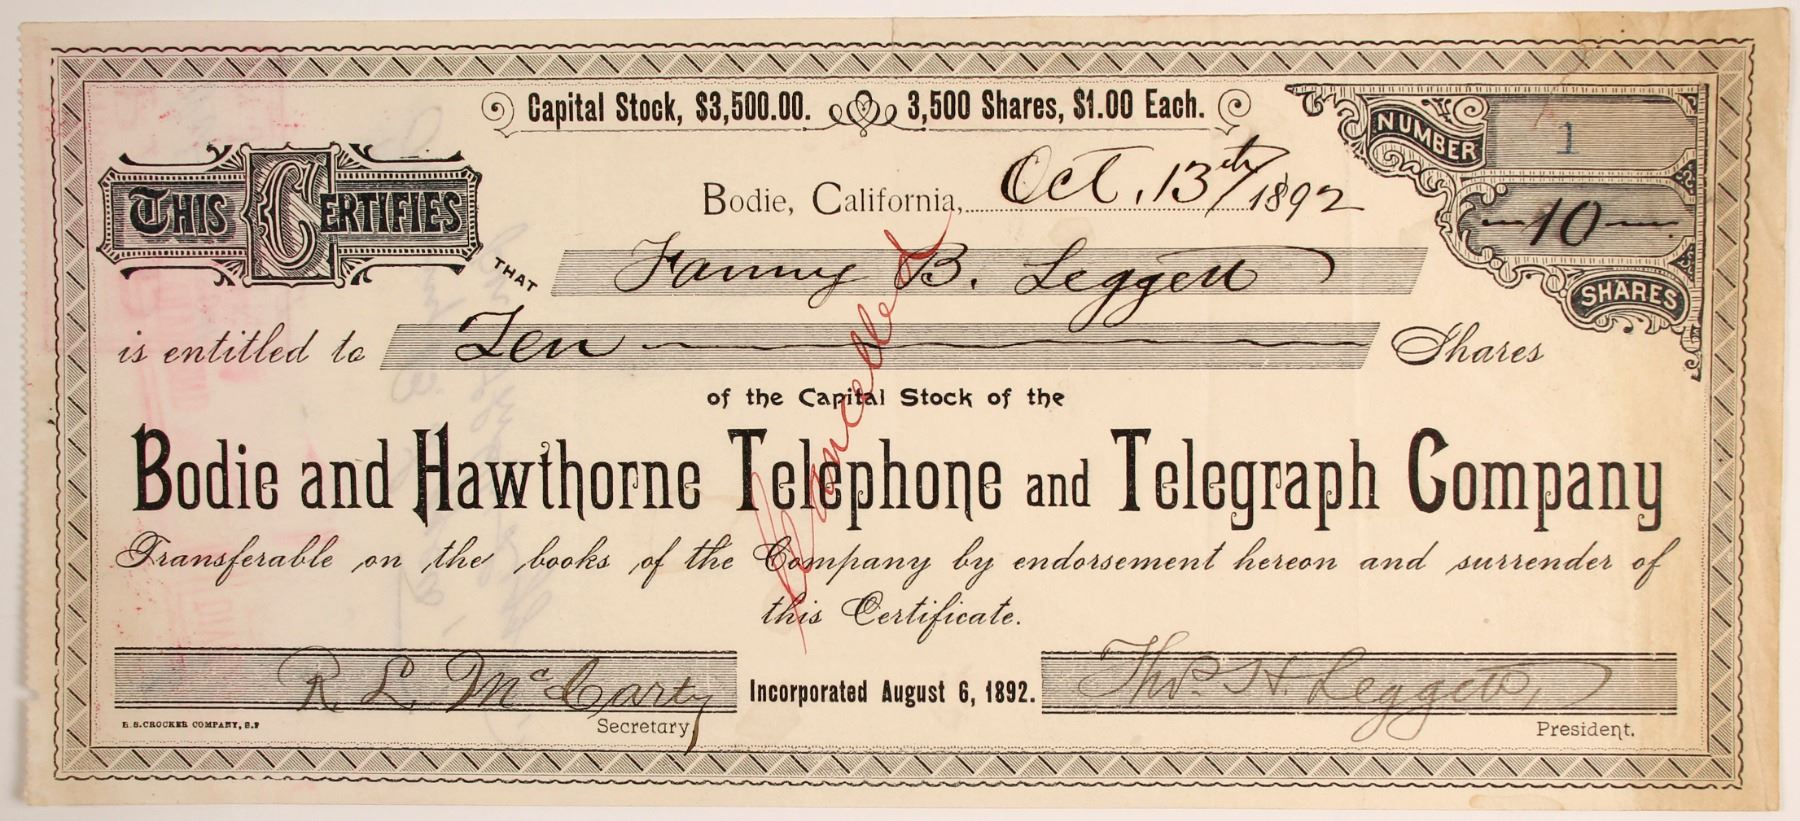 Capital Stock, $3,500.00. 3,500 Shares, $1.00 Each.
NUMBER 1
Bodie, California, Oct. 13th 1892
10
SHARES
THIS CERTIFIES
THAT Fanny B. Leggett
is entitled to Ten Shares
of the Capital Stock of the
Bodie and Hawthorne Telephone and Telegraph Company
Transferable on the books of the Company by endorsement hereon and surrender of
this Certificate.
Cancelled
R. L. McCarty
Incorporated August 6, 1892.
Thos. H. Leggett,
H.S.CROCKER COMPANY, S.F
Secretary
President.